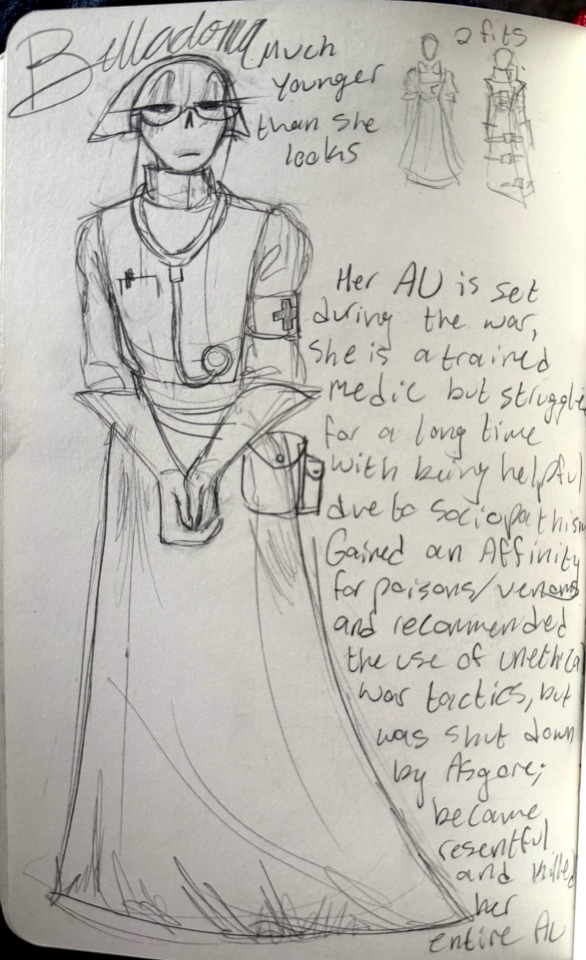 Belladonna
Much
younger
than she
looks
2 fits
Her AU is set
during the war,
she is a trained
medic but struggles
for a long time
with being helpful
due to sociopathism
Gained an Affinity
for poisons/venoms
and recommended
the use of unethical
war tactics, but
was shut down
by Asgore;
became
resentful
and killed
her
entire AU